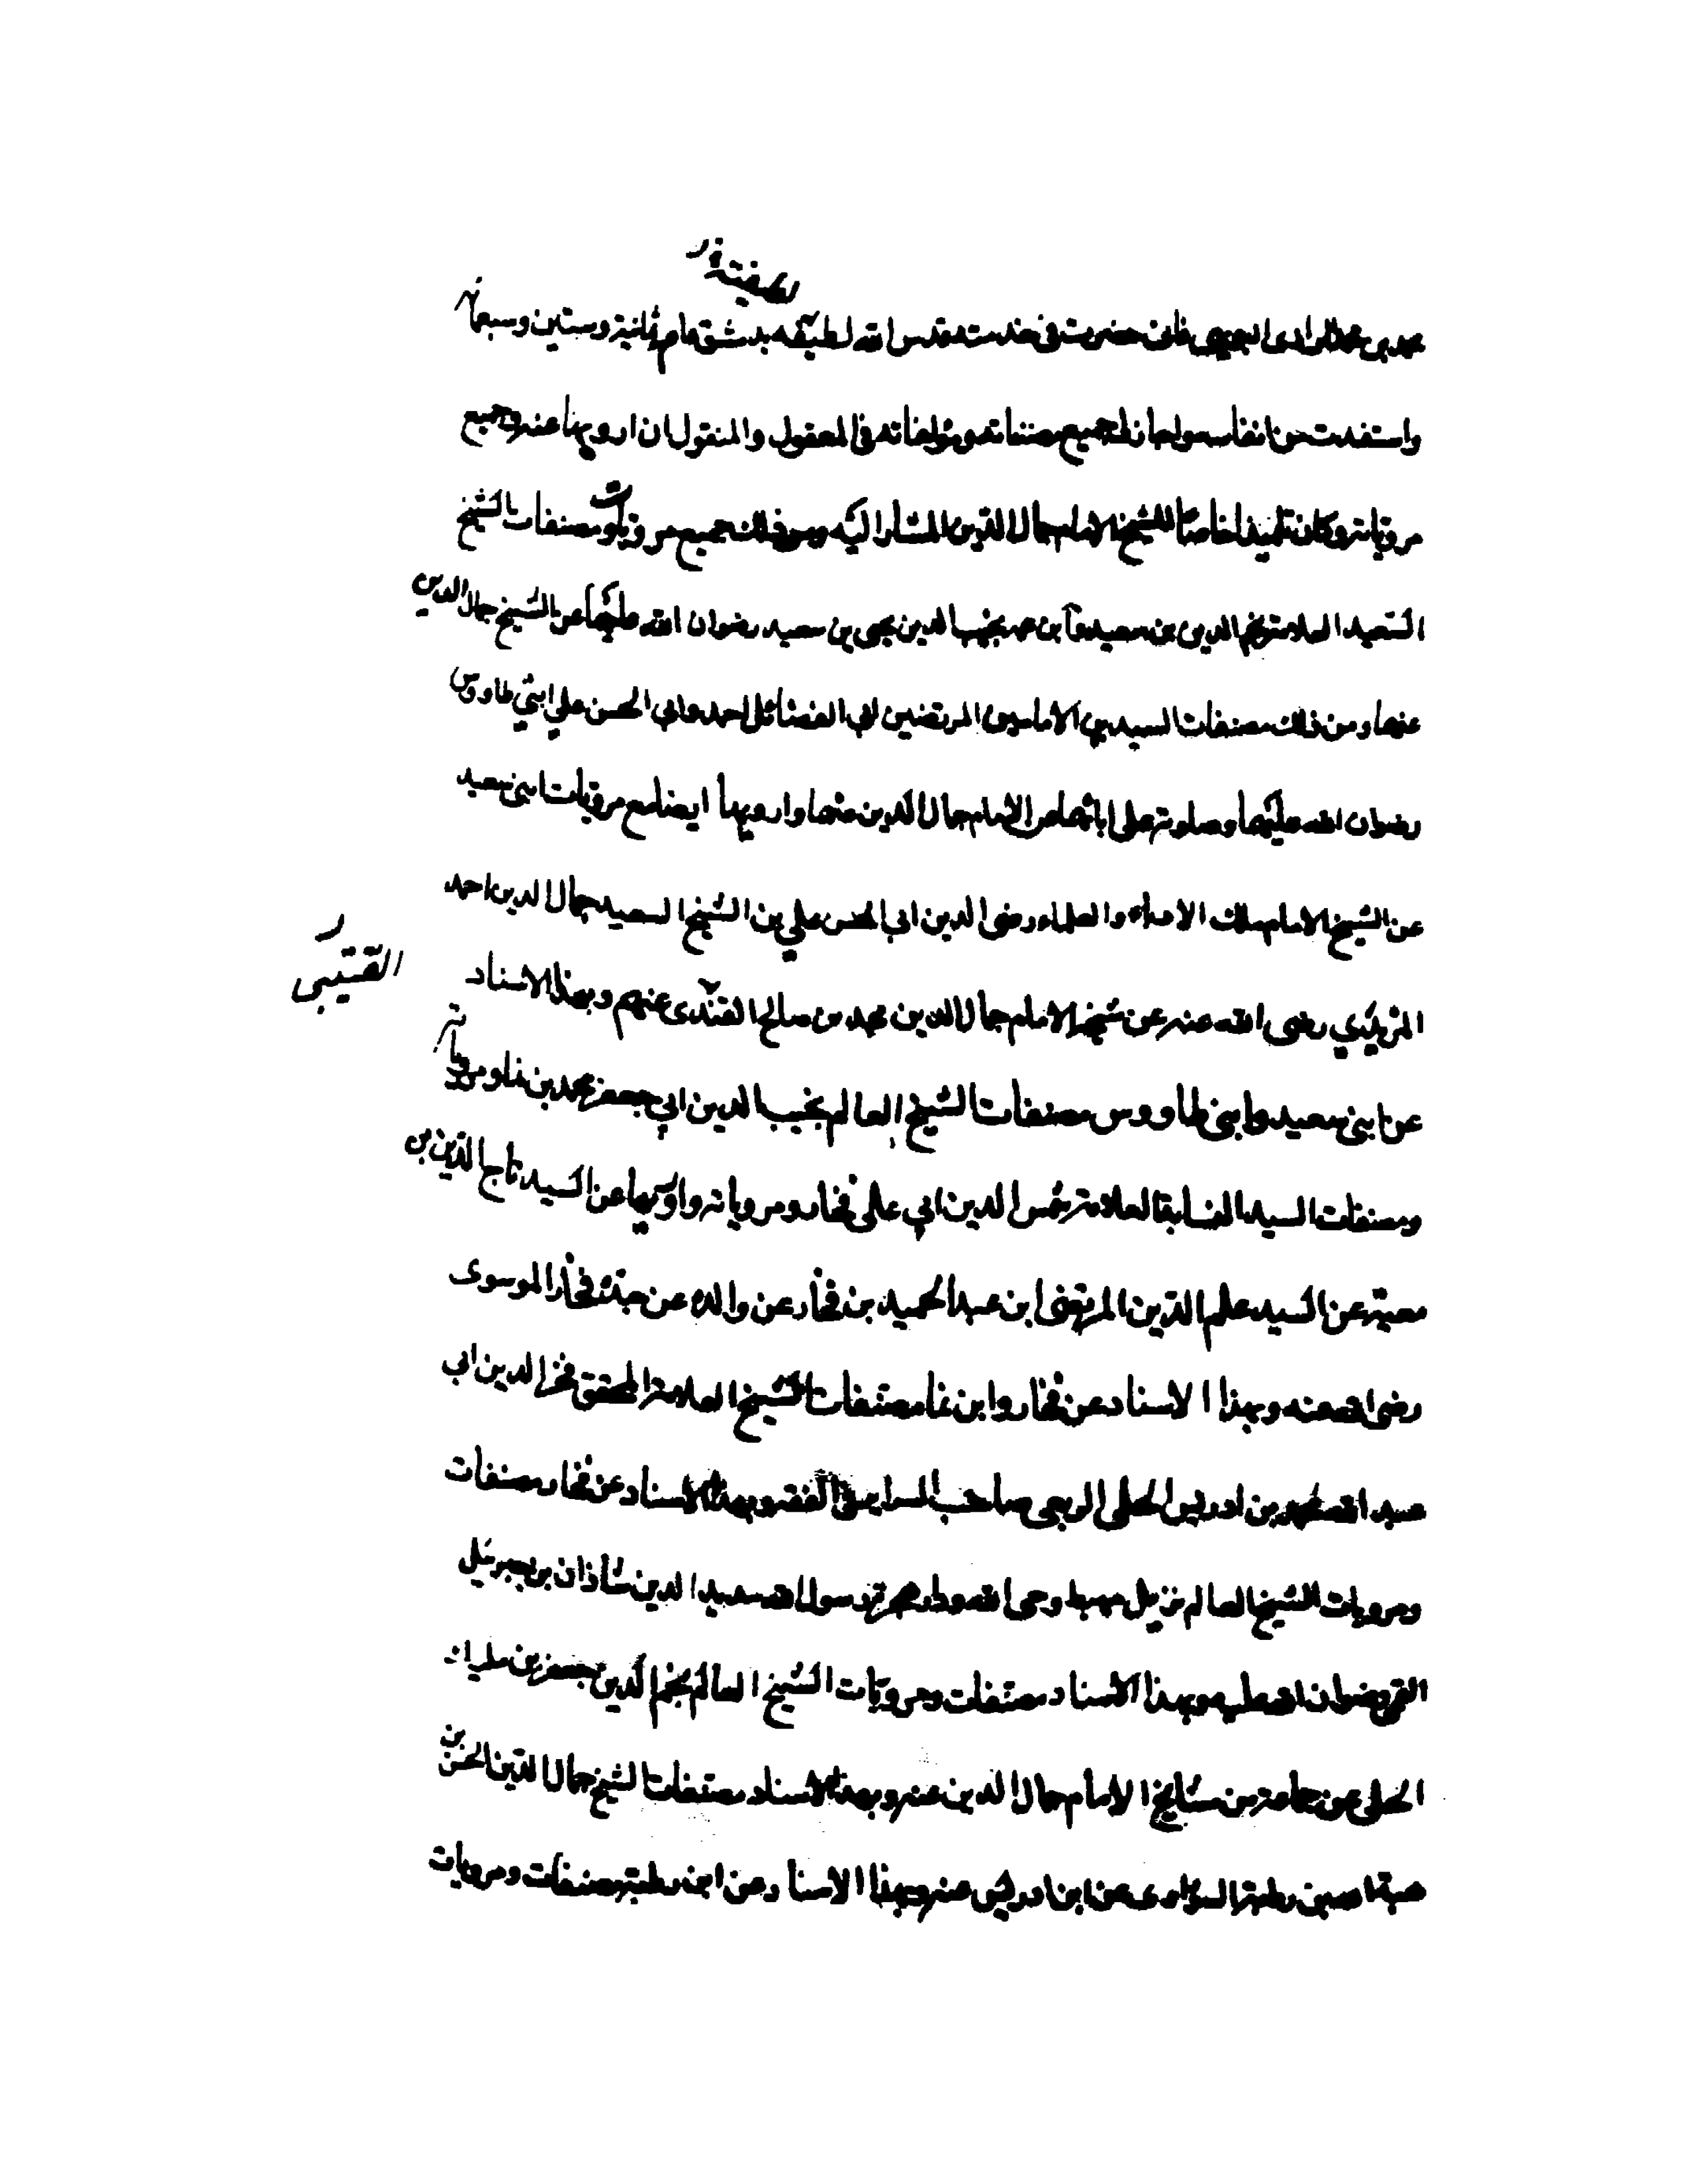 لطيفته ر
محمد بن محمد الرازي البويهي فاني حضرت في خدمته قدس الله لطيفه بدمشق عام ثمانية وستين وسبعمائة
واستفدت من انفاسه واجاز لي جميع مصنفاته ومؤلفاته في المعقول والمنقول ان ارويها عنه وجميع
مروياته وكان تلميذا خاصا للشيخ الامام جمال الدين المشار اليه ومن ذلك جميع مرويات ومصنفات الشيخ
السعيد العلامة نجم الدين بن سعيد وابن عمه نجيب الدين يحيى بن سعيد رضوان الله عليهما عن الشيخ جمال الدين
عنهما ومن ذلك مصنفات السيدين الامامين المرتضين ابي الفضائل احمد وابي الحسن علي ابني طاووس
رضوان الله عليهما وصلوته على ابائهما عن الامام جمال الدين عنهما وارويها ايضا مع مرويات ابني سعيد
عن الشيخ الامام ملك الادباء والعلماء رضي الدين ابي الحسن علي بن الشيخ السعيد جمال الدين احمد
المزيدي رضي الله عنه عن شيخه الامام جمال الدين محمد بن صالح القندى عنهم وبهذا الاسناد
القسيبى ر
عن ابني سعيد وابني طاووس مصنفات الشيخ العالم نجيب الدين ابي جعفر محمد بن نما ومروياته
ومصنفات السيد النسابة العلامة شمس الدين ابي علي فخار ومروياته وارويها عن السيد تاج الدين بن
معية عن السيد علم الدين المرتضى ابن عبد الحميد بن فخار عن والده عن جده فخار الموسوى
رضى الله عنه وبهذا الاسناد عن فخار وابن نما مصنفات الشيخ العلامة المحقق فخر الدين ابي
عبد الله محمد بن ادريس الحلي الربعي صاحب السراير في الفقه وبهذا الاسناد عن فخار مصنفات
ومرويات الشيخ العالم نزيل مهبط وحي الله ودار هجرة رسول الله سديد الدين شاذان بن جبرئيل
القمي رضوان الله عليه وبهذا الاسناد مصنفات ومرويات الشيخ العالم نجم الدين جعفر بن مليك
الحلي عن جماعة من مشايخ الامام جمال الدين عنه وبهذا الاسناد مصنفات الشيخ جمال الدين الحسن بن
هبة الله بن رطبة السوراوى عن ابن ادريس عنه وبهذا الاسناد عن ابن رطبة مصنفات ومرويات